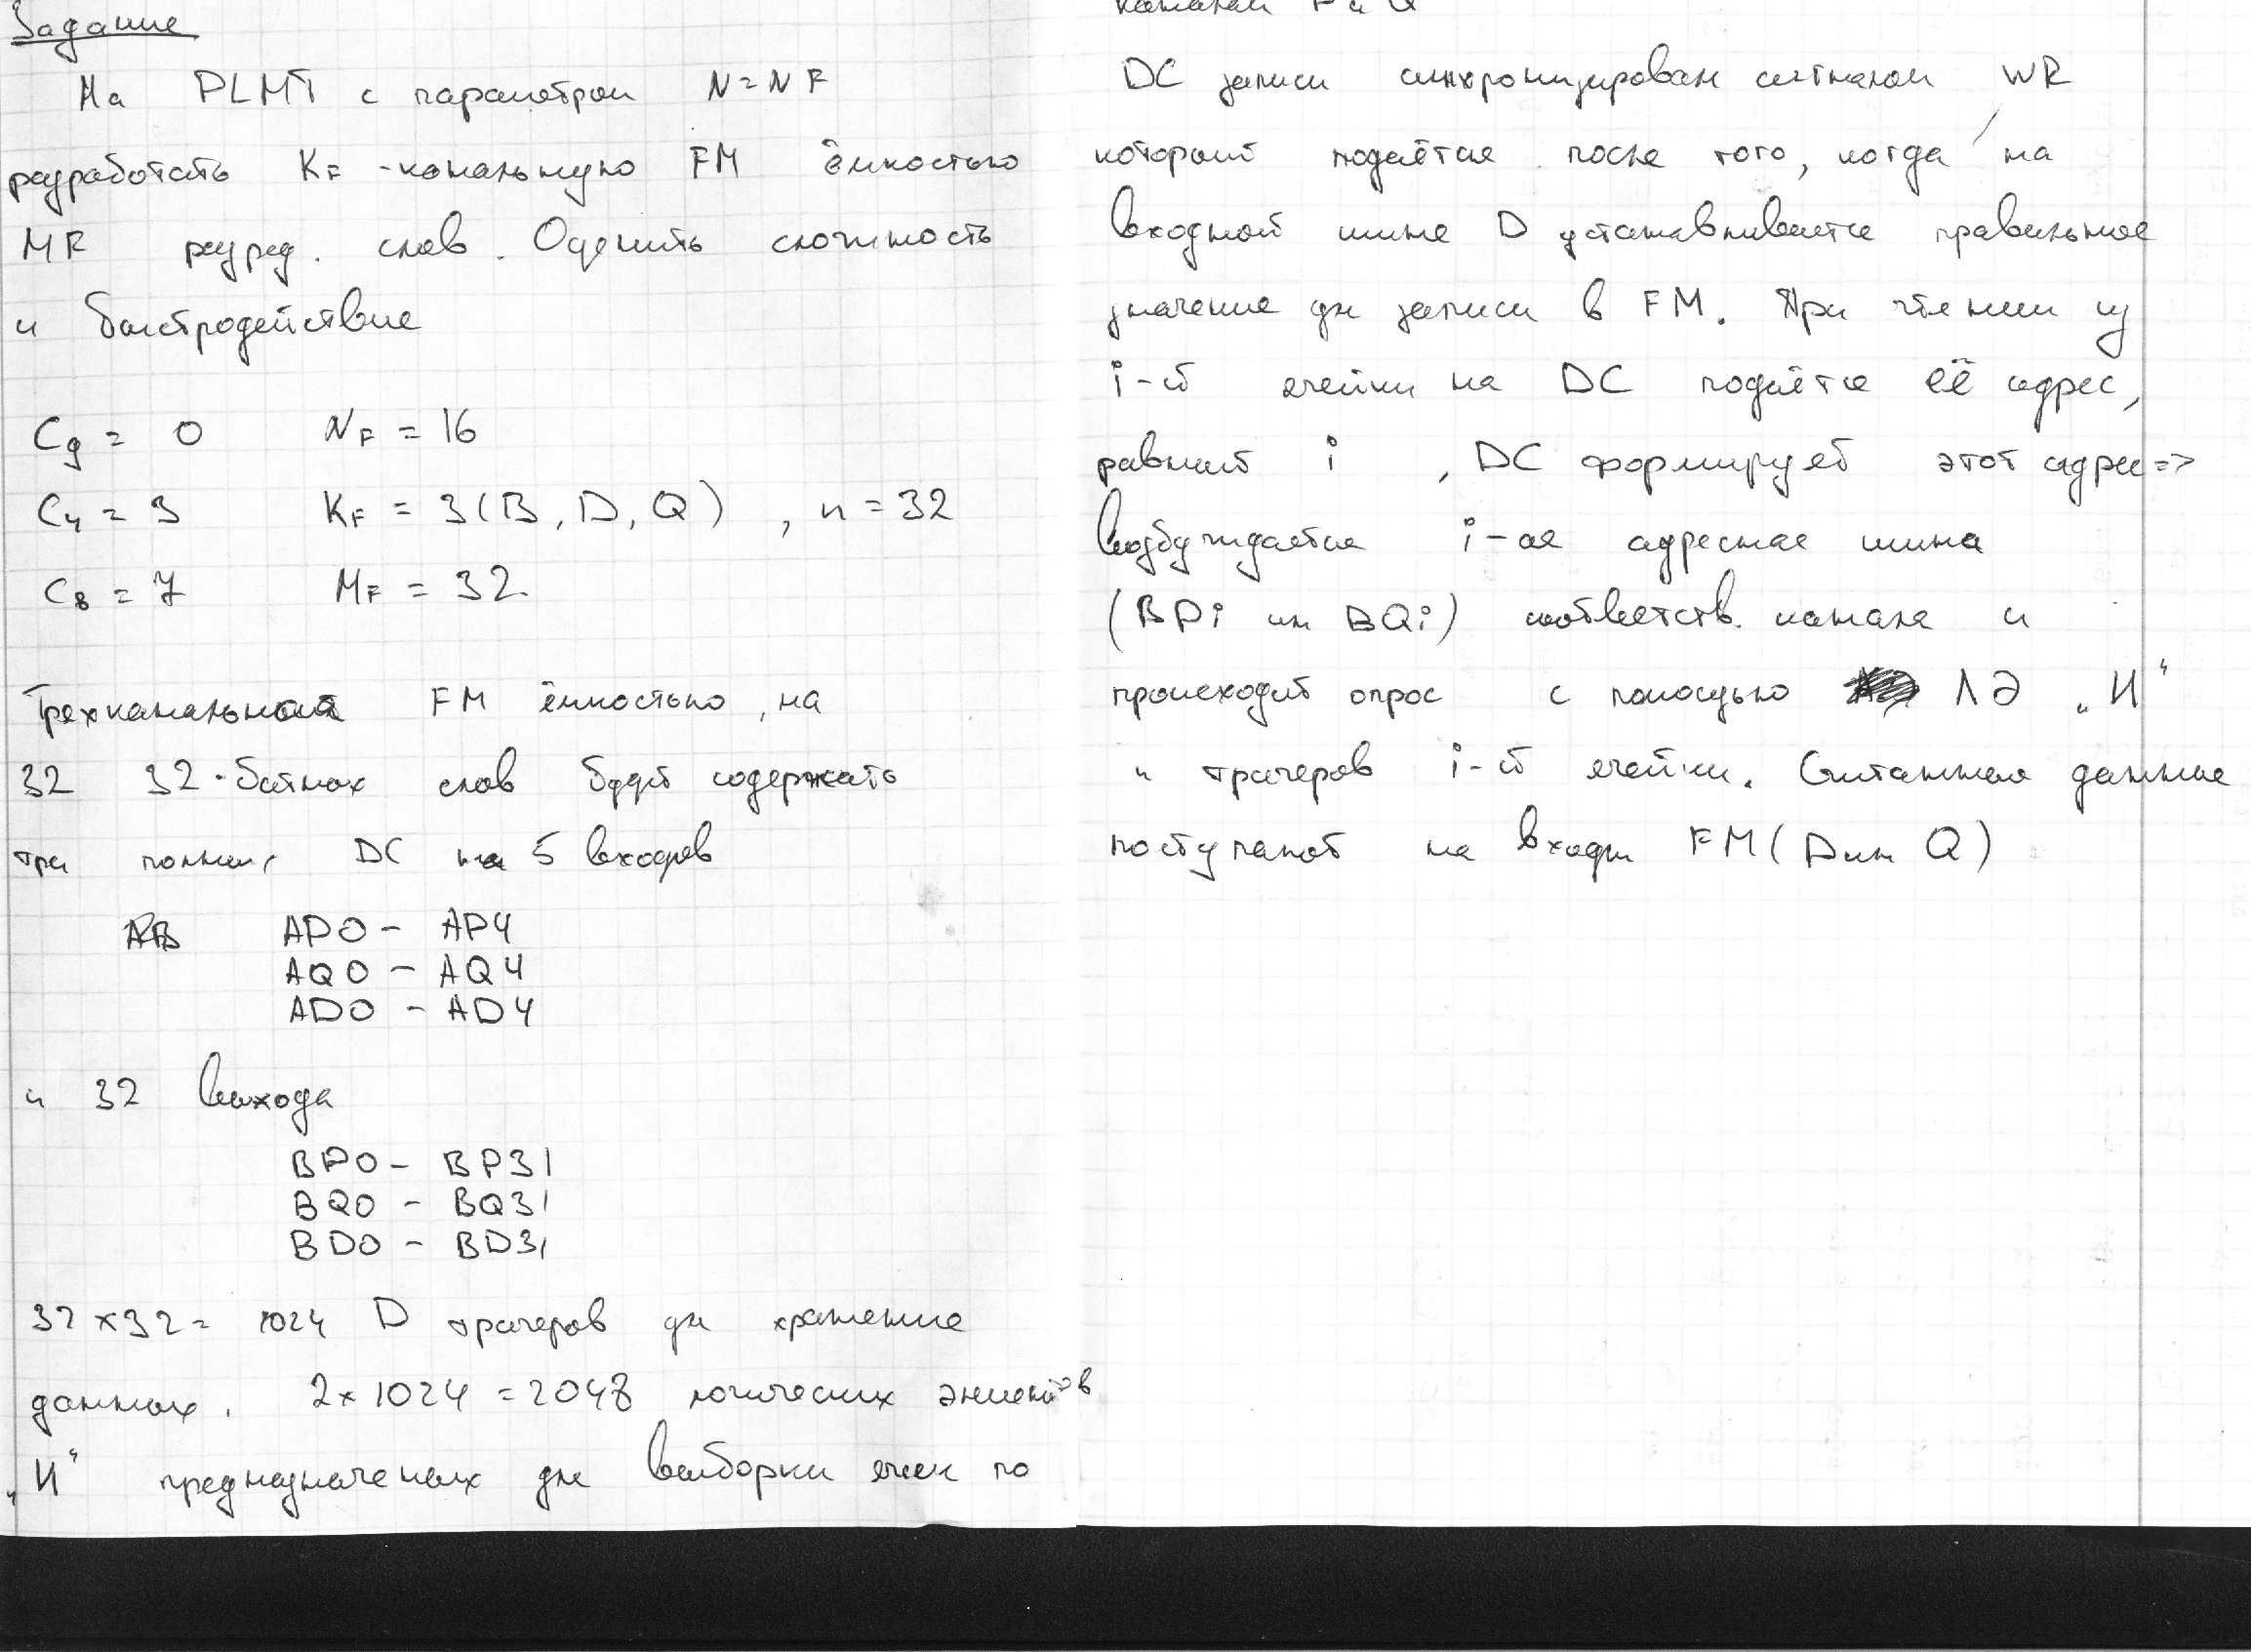 Задание
На PLMT с параметром N=NF
разработать KF -канальную FM ёмкостью
MF разряд. слов. Оценить сложность
и быстродействие
C9 = 0 NF = 16
C4 = 3 KF = 3(B, D, Q) , n = 32
C8 = 7 MF = 32.
Трехканальная FM ёмкостью, на
32 32-битных слов будет содержать
три полных DC на 5 входов
AP0 - AP4
AQ0 - AQ4
AD0 - AD4
и 32 выхода
BP0 - BP31
BQ0 - BQ31
BD0 - BD31
32 x 32 = 1024 D тригеров для хранение
данных. 2 x 1024 = 2048 логических элементов
„И" предназначеных для выборки ячеек по
каналам P и Q
DC записи синхронизирован сигналом WR
который подаётся после того, когда на
входной шине D устанавливается правильное
значение для записи в FM. При чтении из
i-й ячейки на DC подаётся её адрес,
равный i , DC формирует этот адрес =>
возбуждается i-ая адресная шина
(BPi или BQi) соответств. канала и
происходит опрос с помощью ЛЭ „И"
и тригеров i-й ячейки. Считанные данные
поступают на входы FM (D или Q)